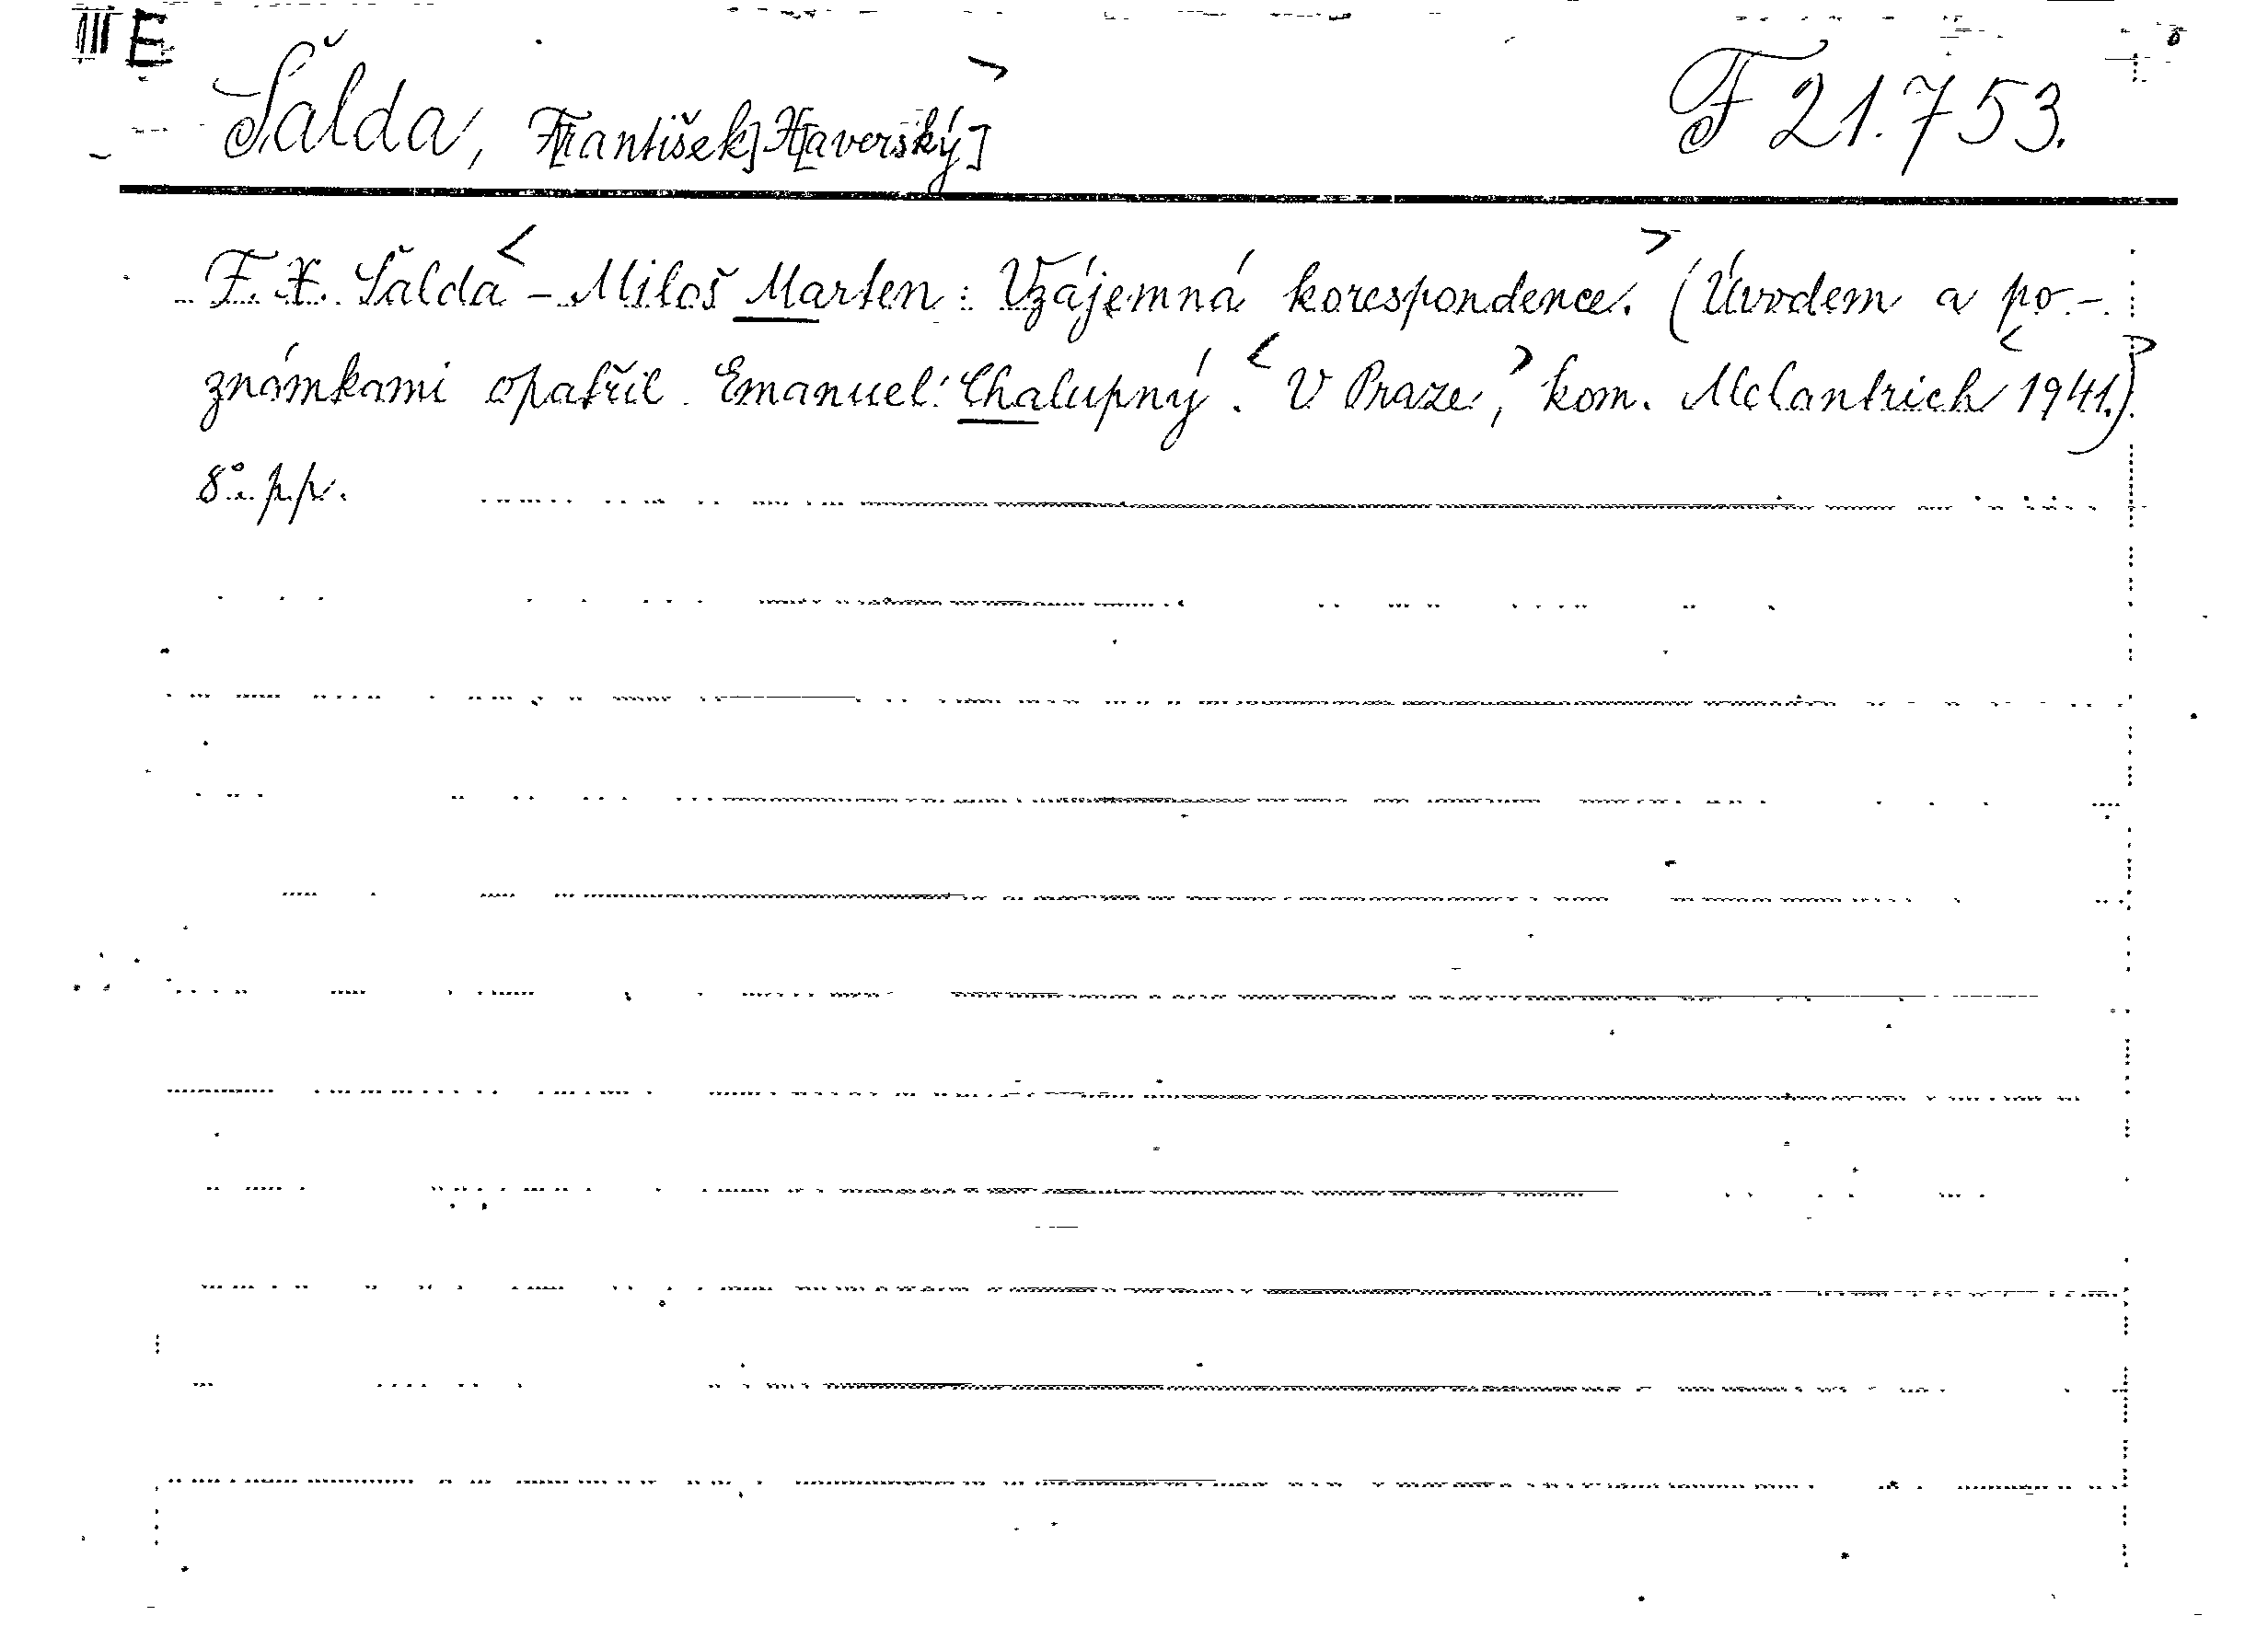 III E
Šalda, F[rantišek] X[averský] F 21.753.
F. X. Šalda - Miloš Marten: Vzájemná korespondence. (Úvodem a po-
známkami opatřil Emanuel Chalupný. V Praze, kom. Melantrich 1941.)
8°. p.p.